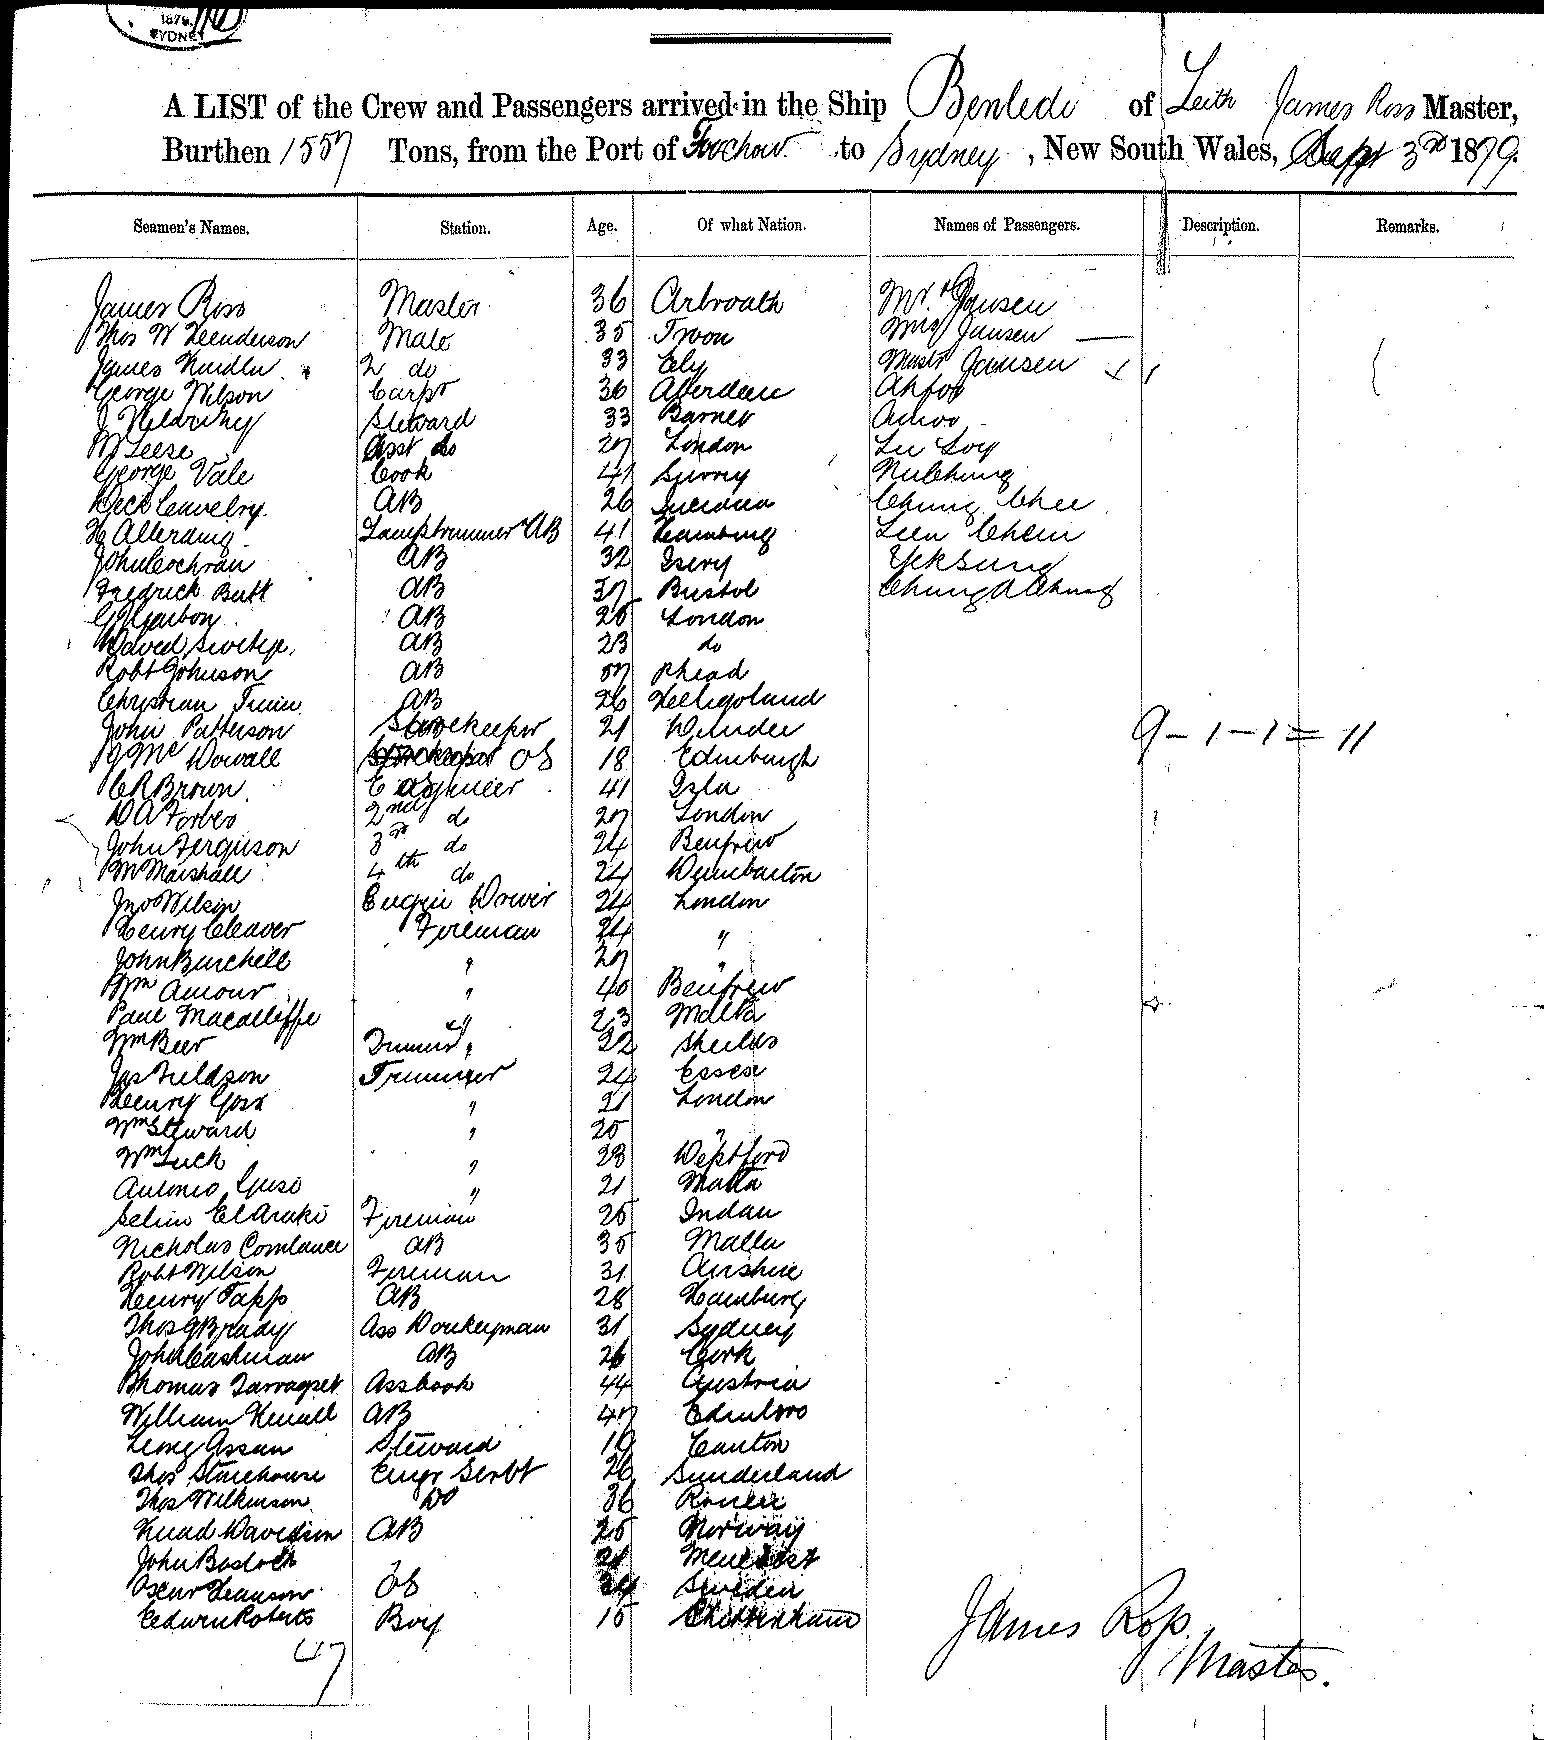 1879
SYDNEY
A LIST of the Crew and Passengers arrived in the Ship Benledi of Leith James Ross Master,
Burthen 1557 Tons, from the Port of Foochow to Sydney, New South Wales, Sept 3rd 1879.
Seamen's Names. Station. Age. Of what Nation. Names of Passengers. Description. Remarks.
James Ross Master 36 Arbroath Mr Jansen
Thos W Henderson Mate 35 Troon Mrs Jansen
James 2 do 33 Ely Mastr Jansen
George Wilson Carpr 36 Aberdeen Ahfoo
J Steward 33 Barnet
W Leese Asst do 27 London Lu Loy
George Vale Cook 41 Surrey
AB 26 Chung Chee
H Allerding Lamptrimmer AB 41 Hamburg Leen Chein
John Cochran AB 32 Yek Sung
Fredrick Butt AB 37 Bristol Chung A Chung
AB 25 London
David AB 23 do
Robt Johnson AB
Christian AB 26 Heligoland
John Patterson Storekeeper 21 Dundee 9 - 1 - 1 = 11
McDowall OS 18 Edinburgh
C R Brown Engineer 41 Isla
D A Forbes 2nd do 27 London
John Ferguson 3rd do 24 Renfrew
Wm Marshall 4th do 24 Dumbarton
Jno Wilson Engin Driver 24 London
Henry Cleaver Fireman 24 "
John Burchell " 27 "
Wm Amour " 40 Renfrew
Paul Macaliffe " 23 Malta
Wm Beer " 22 Shields
Jas Fieldson Trimmer 24 Essex
Henry " 21 London
Wm Steward " 25 "
Wm Luck " 28 Deptford
Antonio " 21 Malta
Selim El Araki Fireman 25
Nicholas AB 35 Malta
Robt Wilson Fireman 31 Airshire
Henry Tapp AB 28 Hamburg
Thos G Brady Ass Donkeyman 31 Sydney
John Cashman AB 26 Cork
Thomas Ass Cook 44 Austria
William AB 47 Edinboro
Leong Assan Steward Canton
Thos Stonehouse 26 Sunderland
Thos Wilkinson Do 36
Davidson AB 25 Norway
John 21
Oscar OS 24 Sweden
Edwin Roberts Boy 15 Cheltenham
47
James Ross
Master.